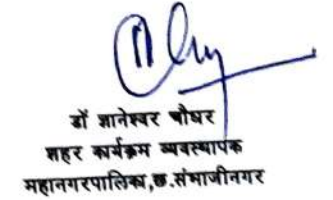 डॉ ज्ञानेश्वर चौधर
शहर कार्यक्रम व्यवस्थापक
महानगरपालिका,छ.संभाजीनगर